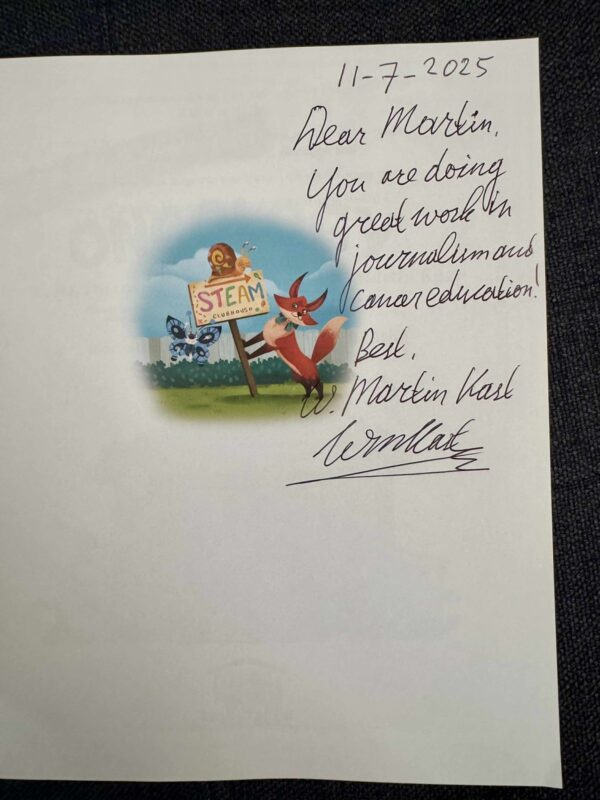 11-7-2025
Dear Martin,
You are doing
great work in
journalism and
cancer education!
Best,
W. Martin Kast
WMKast
STEAM
CLUBHOUSE